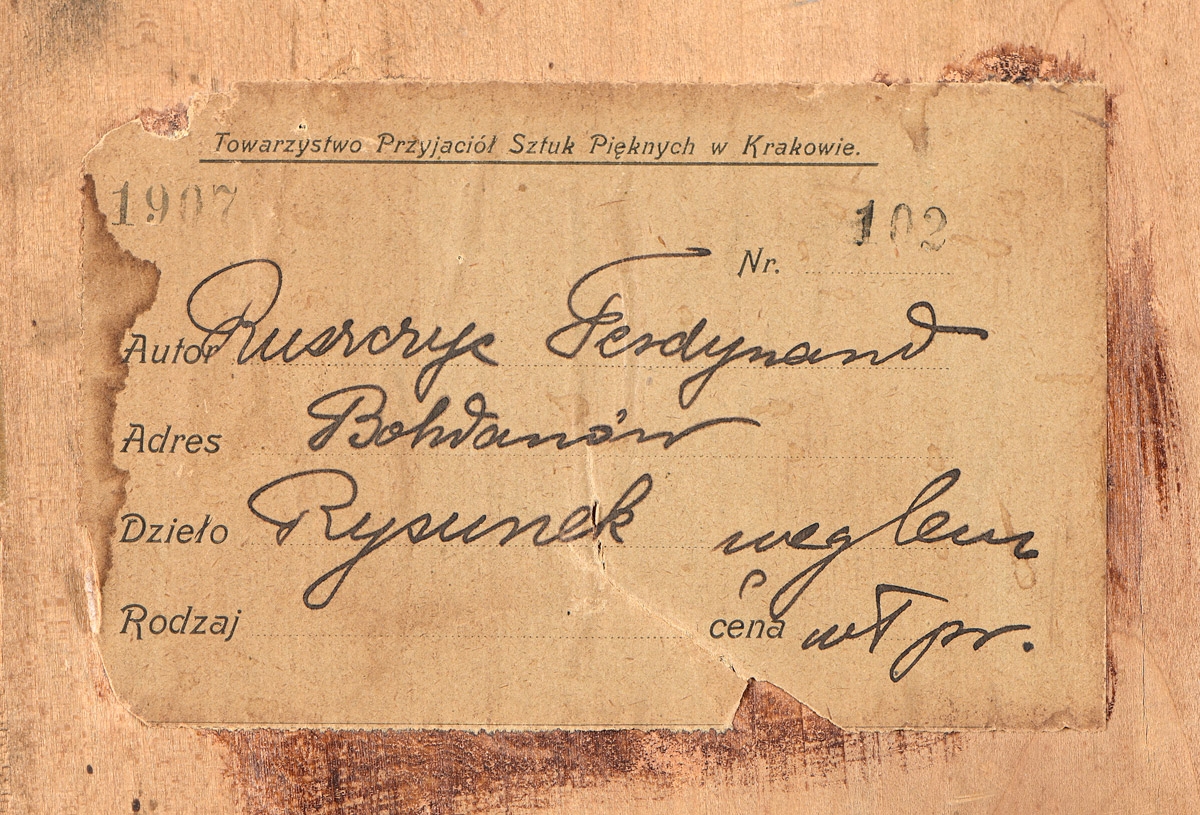 Towarzystwo Przyjaciół Sztuk Pięknych w Krakowie.
1907
Nr. 102
Autor Ruszczyc Ferdynand
Adres Bohdanów
Dzieło Rysunek węglem
Rodzaj cena wł pr.